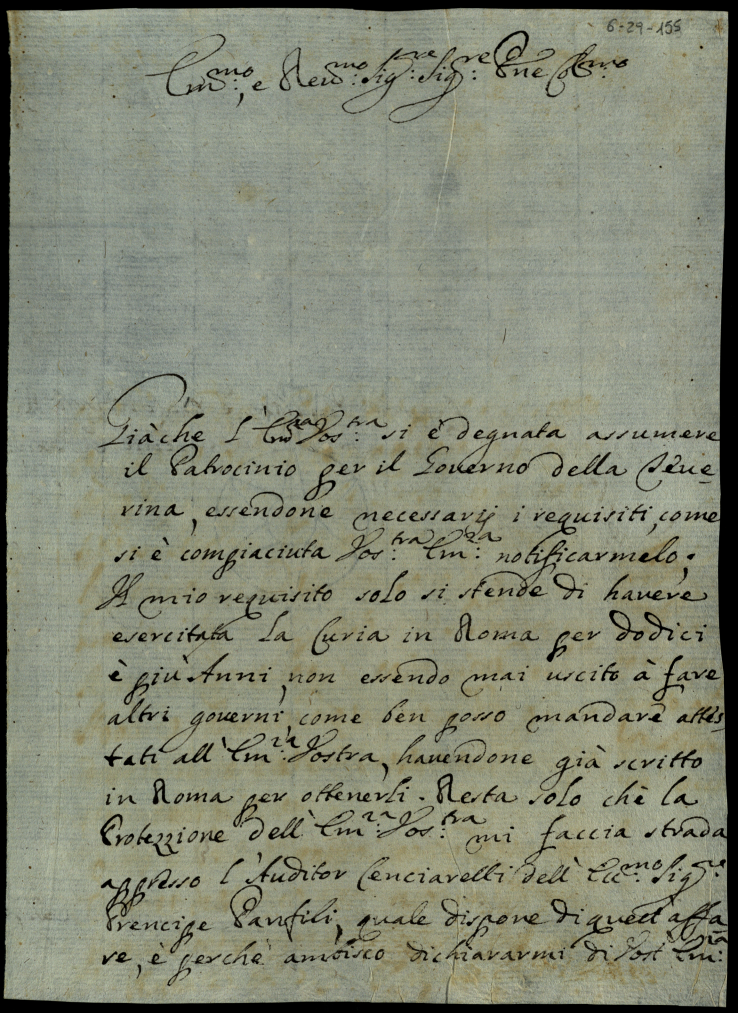 6-29-155
Em.mo, e Reu.mo Sig.re Sig.re Pne Col.mo
Giàche l'Em.za Vos.tra si è degnata assumere
il Patrocinio per il Governo della Seue=
rina, essendone necessarij i requisiti, come
si è compiaciuta Vos.tra Em.za notificarmelo;
Il mio requisito solo si stende di havere
esercitata la Curia in Roma per dodici
è più Anni, non essendo mai uscito à fare
altri governi, come ben posso mandare attes=
tati all'Em.za Vostra, havendone già scritto
in Roma per ottenerli. Resta solo chè la
Protezzione dell'Em.za Vos.tra mi faccia strada
appresso l'Auditor Cenciarelli dell'Ecc.mo Sig.re
Prencipe Panfili, quale dispone di quest'affa
re, è perchè ambisco dichiararmi di Vost. Em.za